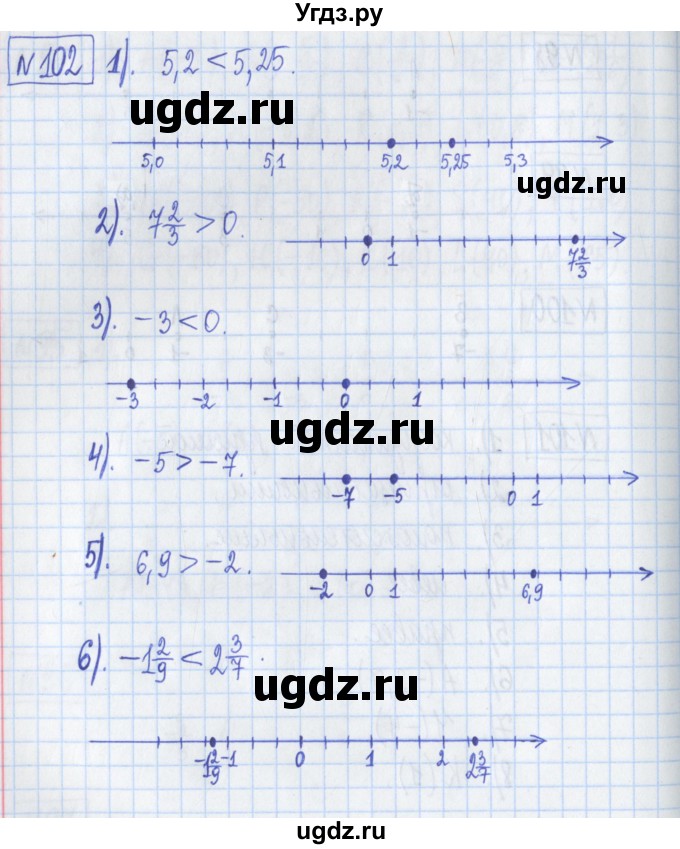 Угдз.ру
№102 1). 5,2 < 5,25.
ugdz.ru
5,0 5,1 5,2 5,25 5,3
ugdz.ru
2). 7 2/3 > 0.
0 1 7 2/3
3). -3 < 0.
-3 -2 -1 0 1
ugdz.ru
4). -5 > -7.
-7 -5 0 1
5). 6,9 > -2.
-2 0 1 6,9
ugdz.ru
6). -1 2/9 < 2 3/7.
ugdz.ru
-1 2/9 -1 0 1 2 2 3/7
ugdz.ru